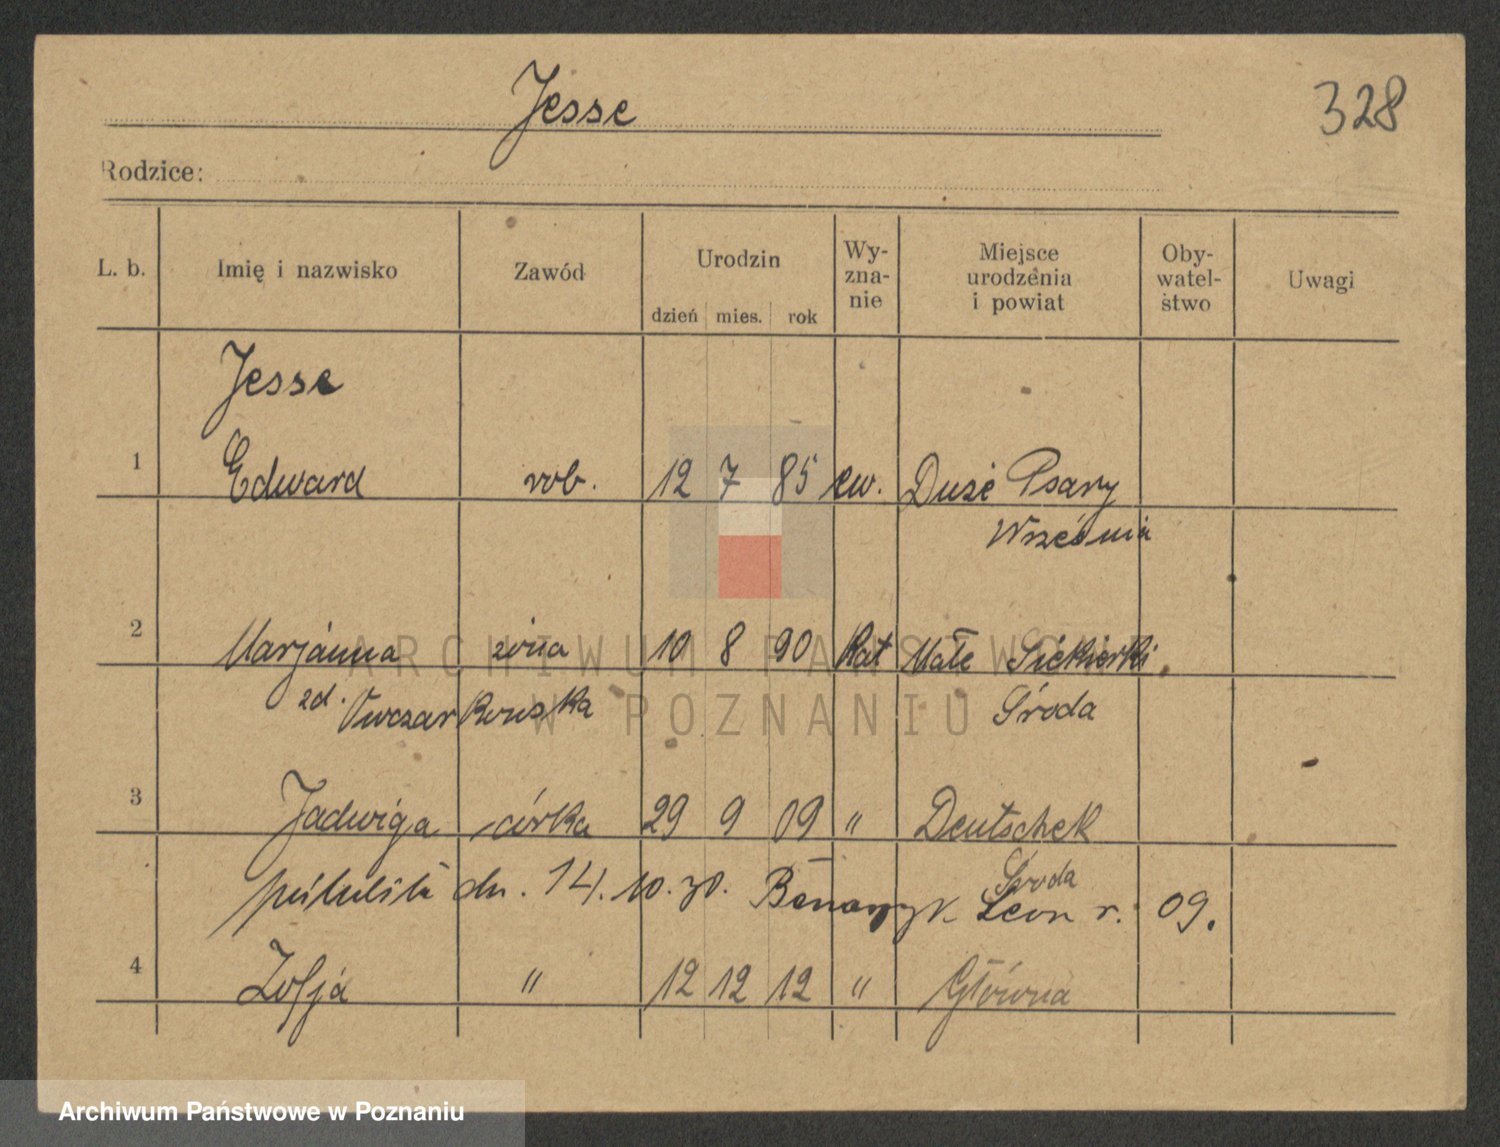 Jesse
328
Rodzice:
L. b. Imię i nazwisko Zawód Urodzin dzień mies. rok Wy-zna-nie Miejsce urodzenia i powiat Oby-watel-stwo Uwagi
Jesse
1 Edward rob. 12 7 85 ew. Duże Psary
Września
2 Marjanna żona 10 8 90 Kat Małe Siekierki
zd. Owczarkowska Środa
3 Jadwiga córka 29 9 09 " Deutschek
Środa
dn. 14. 10. 30. Leon r. 09.
4 Zofja " 12 12 12 " Główna
ARCHIWUM PAŃSTWOWE
W POZNANIU
Archiwum Państwowe w Poznaniu